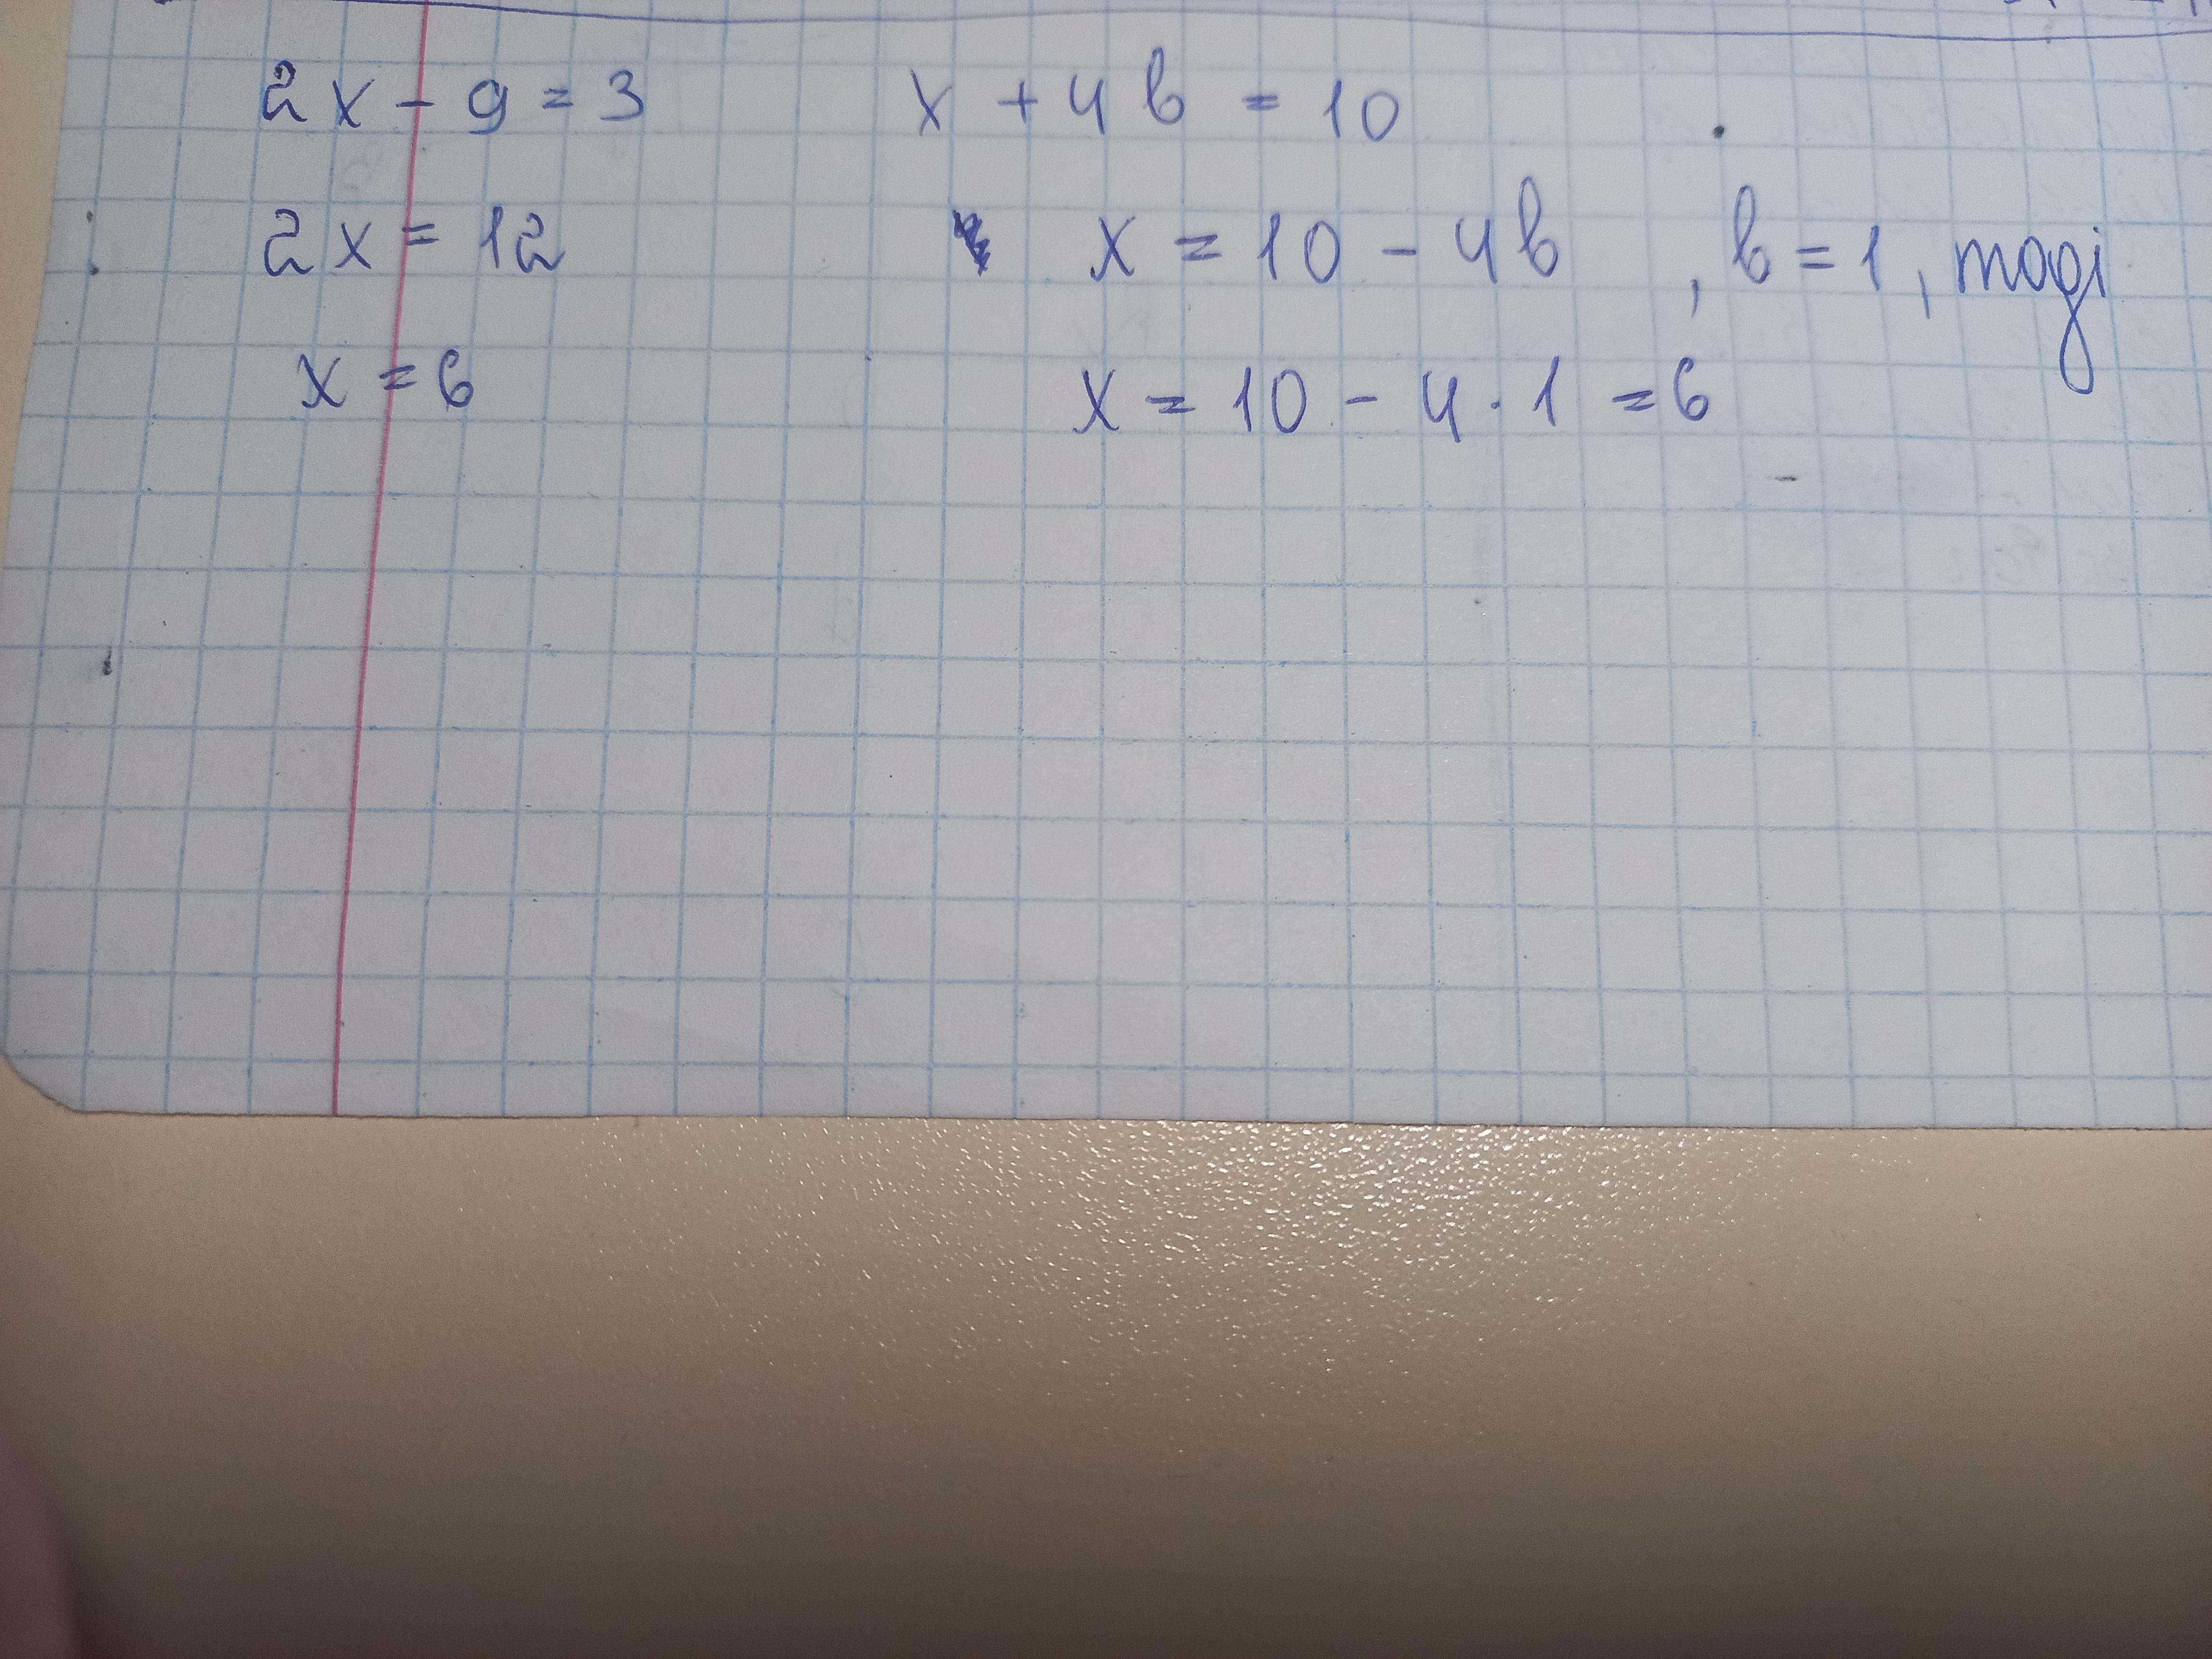 2x - 9 = 3
2x = 12
x = 6
x + 4b = 10
x = 10 - 4b , b = 1, тоді
x = 10 - 4 · 1 = 6